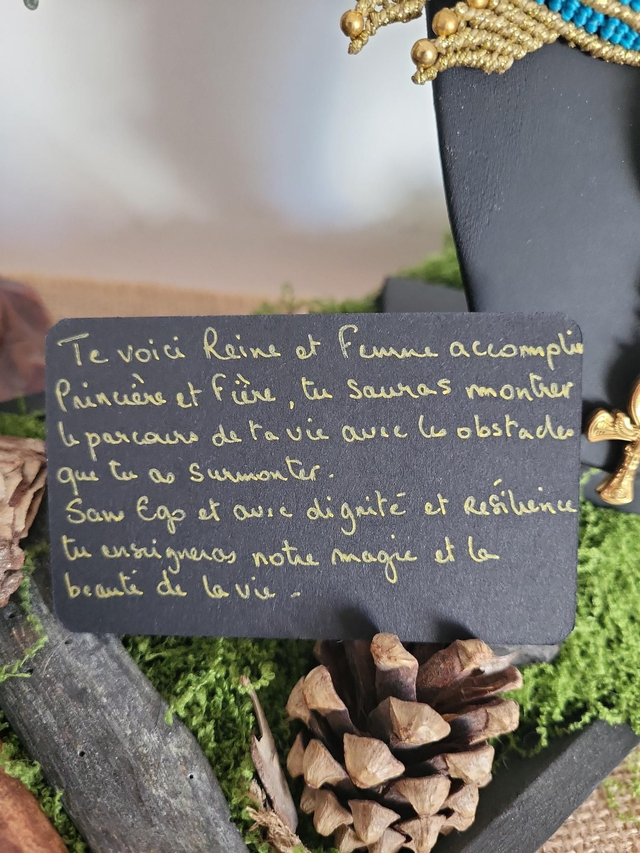 Te voici Reine et Femme accomplie
Princière et Fière, tu sauras montrer
le parcours de ta vie avec les obstacles
que tu as surmonter.
Sans Ego et avec dignité et Résilience
tu enseigneras notre magie et la
beauté de la vie.